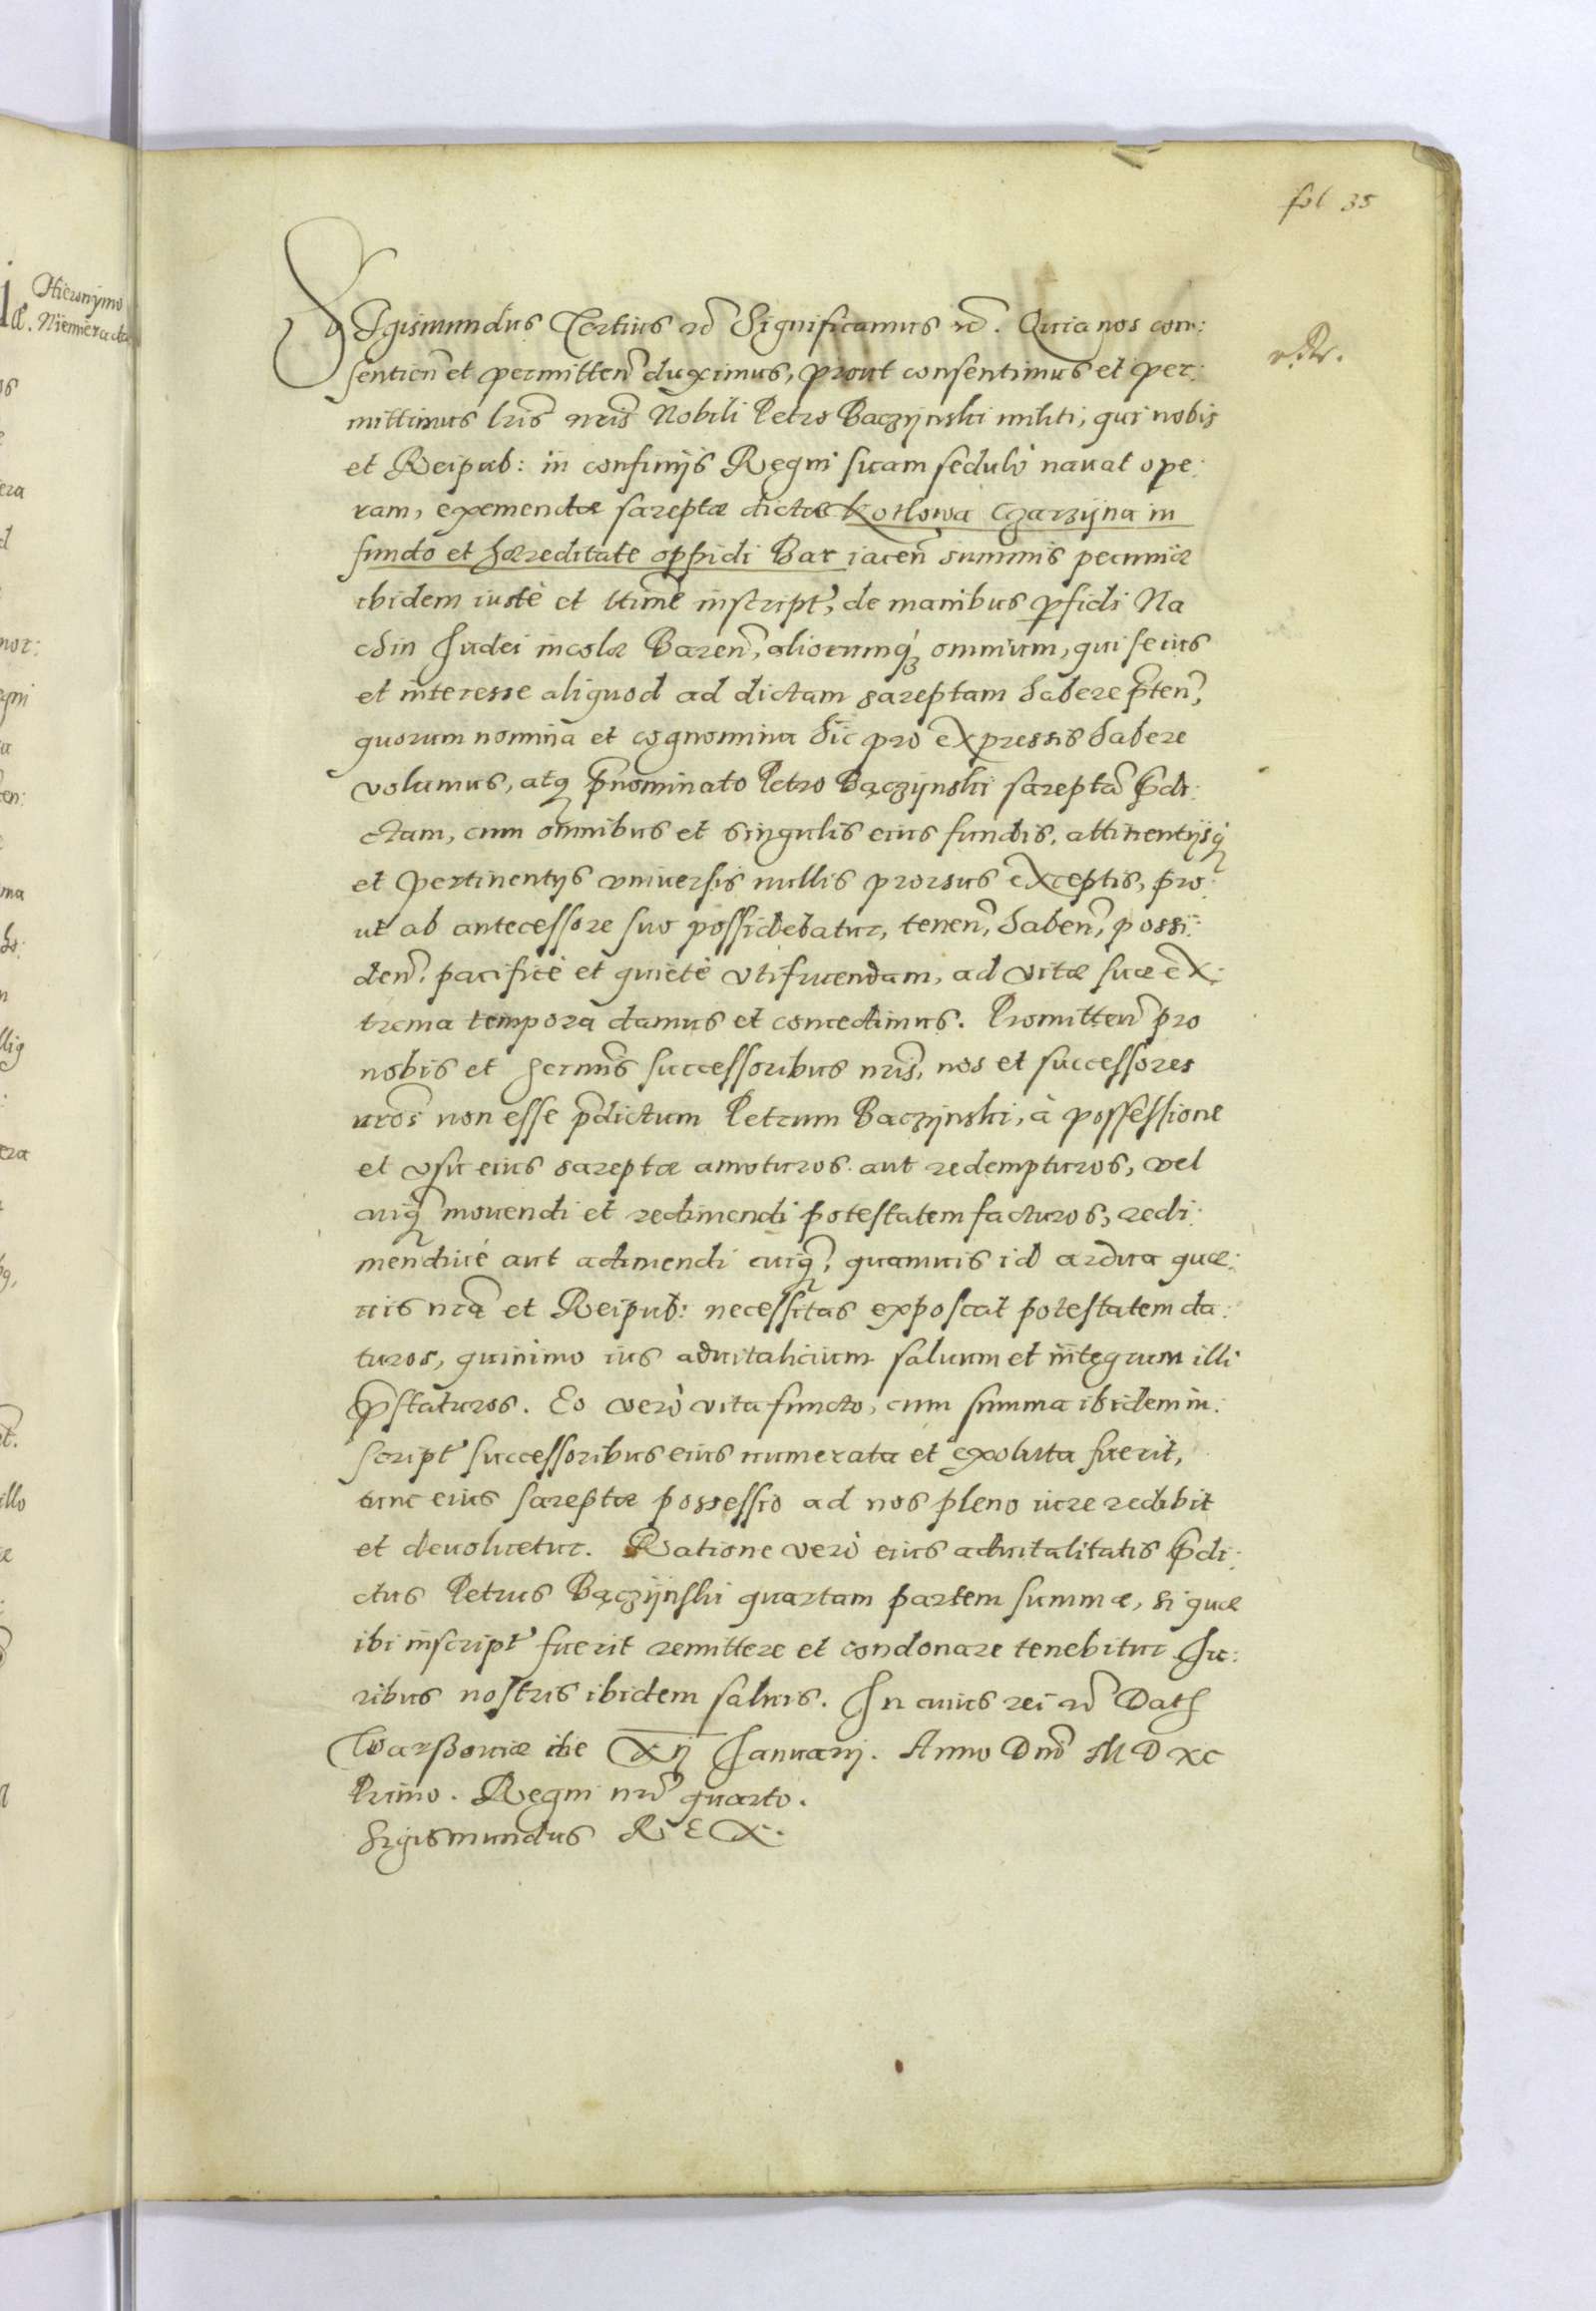 fol 35
Hieronymo
Niemiera
SIgismundus Tertius etc Significamus etc. Quia nos con:
sentien̄ et permitten̄ duximus, prout consentimus et per:
mittimus lr̄is nr̄is Nobili Petro Baczÿnski militi, qui nobis
et Reipub: in confinijs Regni suam sedulò nauat ope:
ram, eximendæ sareptæ dictæ Kotlowa Czarzÿna in
fundo et hæreditate oppidi Bar iacen̄ summis pecuniæ
ibidem iustè et ltimè inscript, de manibus perfidi Na
chin Judei incolæ Baren̄, aliorumq́ omnium, qui se ius
et interesse aliquod ad dictam sareptam habere p̄ten̄,
quorum nomina et cognomina hic pro expressis habere
volumus, atq p̄nominato Petro Bączÿnski sareptā p̄di:
ctam, cum omnibus et singulis eius fundis, attinentijsq́
et pertinentijs vniuersis nullis prorsus exceptis, pro:
ut ab antecessore suo possidebatur, tenen̄, haben̄, possi:
den̄. pacificè et quietè vtifruendam, ad vitæ suæ ex:
trema tempora damus et concedimus. Promitten̄ pro
nobis et serm̄is successoribus nr̄is, nos et successores
nr̄os non esse p̄dictum Petrum Baczÿnski, à possessione
et vsu eius sareptæ amoturos aut redempturos, vel
cuiq̄ mouendi et redimendi potestatem facturos, redi:
mendiué aut adimendi cuiq̄, quamuis id ardua quæ:
uis nr̄a et Reipub: necessitas exposcat potestatem da:
turos, quinimo ius aduitalicium saluum et integrum illi
p̄staturos. Eo verò vita functo, cum summa ibidem in:
script successoribus eius numerata et exoluta fuerit,
tunc eius sareptæ possessio ad nos pleno iure redibit
et deuoluetur. Ratione verò eius aduitalitatis p̄di:
ctus Petrus Bączÿnski quartam partem summæ, si quæ
ibi inscript fuerit remittere et condonare tenebitur Ju:
ribus nostris ibidem saluis. In cuius rei etc Dat
Warßouiæ die XIJ Januarij. Anno Dn̄i MDXC
Primo. Regni nr̄i quarto.
Sigismundus REX.